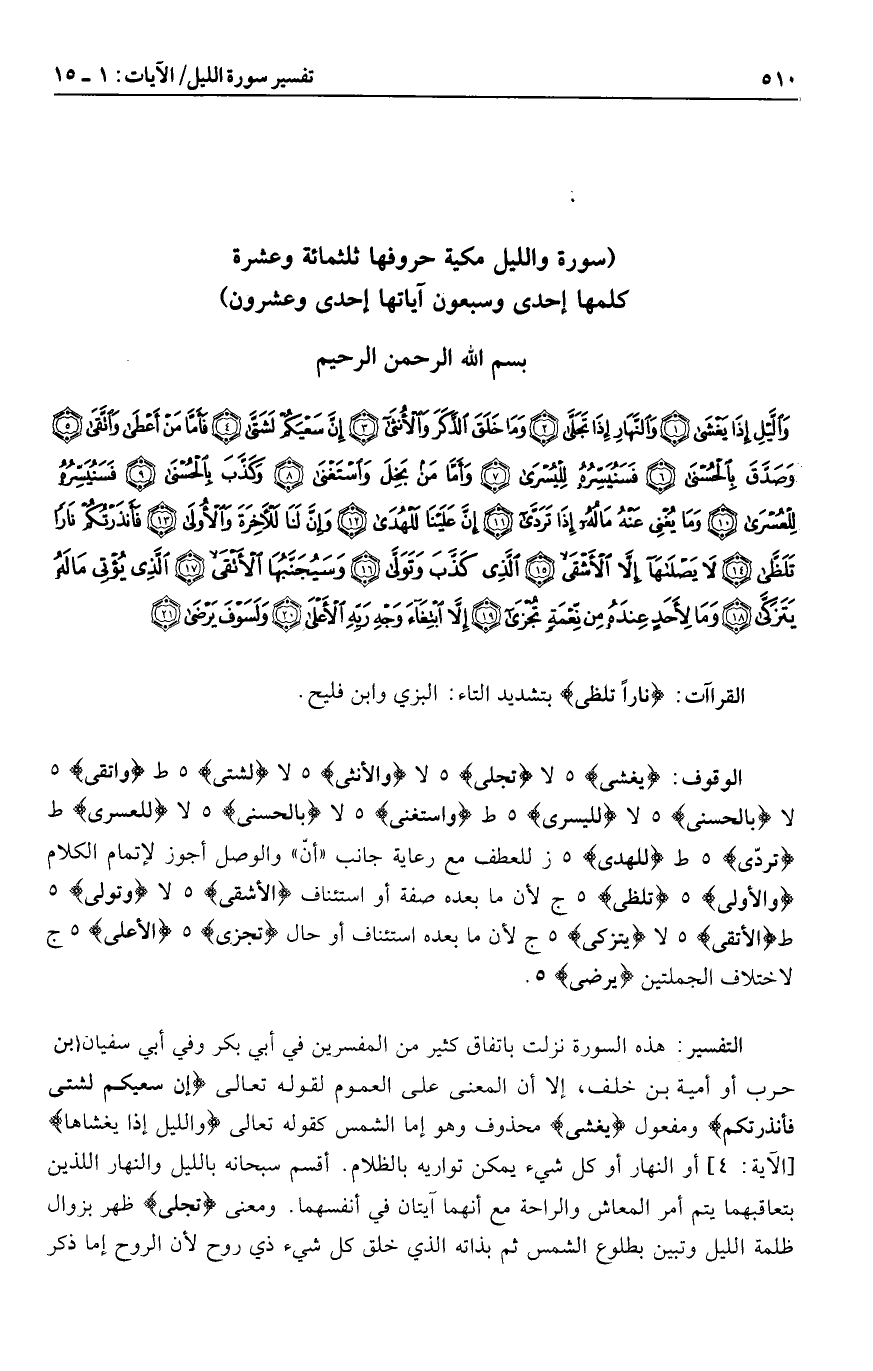 ٥١٠ تفسير سورة الليل/ الآيات: ١ ـ ١٥
(سورة والليل مكية حروفها ثلثمائة وعشرة
كلمها إحدى وسبعون آياتها إحدى وعشرون)
بسم الله الرحمن الرحيم
وَٱلَّيۡلِ إِذَا يَغۡشَىٰ ﴿١﴾ وَٱلنَّهَارِ إِذَا تَجَلَّىٰ ﴿٢﴾ وَمَا خَلَقَ ٱلذَّكَرَ وَٱلۡأُنثَىٰٓ ﴿٣﴾ إِنَّ سَعۡيَكُمۡ لَشَتَّىٰ ﴿٤﴾ فَأَمَّا مَنۡ أَعۡطَىٰ وَٱتَّقَىٰ ﴿٥﴾
وَصَدَّقَ بِٱلۡحُسۡنَىٰ ﴿٦﴾ فَسَنُيَسِّرُهُۥ لِلۡيُسۡرَىٰ ﴿٧﴾ وَأَمَّا مَنۢ بَخِلَ وَٱسۡتَغۡنَىٰ ﴿٨﴾ وَكَذَّبَ بِٱلۡحُسۡنَىٰ ﴿٩﴾ فَسَنُيَسِّرُهُۥ
لِلۡعُسۡرَىٰ ﴿١٠﴾ وَمَا يُغۡنِي عَنۡهُ مَالُهُۥٓ إِذَا تَرَدَّىٰٓ ﴿١١﴾ إِنَّ عَلَيۡنَا لَلۡهُدَىٰ ﴿١٢﴾ وَإِنَّ لَنَا لَلۡأٓخِرَةَ وَٱلۡأُولَىٰ ﴿١٣﴾ فَأَنذَرۡتُكُمۡ نَارٗا
تَلَظَّىٰ ﴿١٤﴾ لَا يَصۡلَىٰهَآ إِلَّا ٱلۡأَشۡقَى ﴿١٥﴾ ٱلَّذِي كَذَّبَ وَتَوَلَّىٰ ﴿١٦﴾ وَسَيُجَنَّبُهَا ٱلۡأَتۡقَى ﴿١٧﴾ ٱلَّذِي يُؤۡتِي مَالَهُۥ
يَتَزَكَّىٰ ﴿١٨﴾ وَمَا لِأَحَدٍ عِندَهُۥ مِن نِّعۡمَةٖ تُجۡزَىٰٓ ﴿١٩﴾ إِلَّا ٱبۡتِغَآءَ وَجۡهِ رَبِّهِ ٱلۡأَعۡلَىٰ ﴿٢٠﴾ وَلَسَوۡفَ يَرۡضَىٰ ﴿٢١﴾
القراآت: ﴿ناراً تلظى﴾ بتشديد التاء: البزي وابن فليح.
الوقوف: ﴿يغشى﴾ ٥ لا ﴿تجلى﴾ ٥ لا ﴿والأنثى﴾ ٥ لا ﴿لشتى﴾ ٥ ط ﴿واتقى﴾ ٥
لا ﴿بالحسنى﴾ ٥ لا ﴿لليسرى﴾ ٥ ط ﴿واستغنى﴾ ٥ لا ﴿بالحسنى﴾ ٥ لا ﴿للعسرى﴾ ط
﴿تردّى﴾ ٥ ط ﴿للهدى﴾ ٥ ز للعطف مع رعاية جانب «أنّ» والوصل أجوز لإتمام الكلام
﴿والأولى﴾ ٥ ﴿تلظى﴾ ٥ ج لأن ما بعده صفة أو استئناف ﴿الأشقى﴾ ٥ لا ﴿وتولى﴾ ٥
ط﴿الأتقى﴾ ٥ لا ﴿يتزكى﴾ ٥ ج لأن ما بعده استئناف أو حال ﴿تجزى﴾ ٥ ﴿الأعلى﴾ ٥ ج
لاختلاف الجملتين ﴿يرضى﴾ ٥.
التفسير: هذه السورة نزلت باتفاق كثير من المفسرين في أبي بكر وفي أبي سفيان(بن
حرب أو أمية بن خلف، إلا أن المعنى على العموم لقوله تعالى ﴿إن سعيكم لشتى
فأنذرتكم﴾ ومفعول ﴿يغشى﴾ محذوف وهو إما الشمس كقوله تعالى ﴿والليل إذا يغشاها﴾
[الآية: ٤] أو النهار أو كل شيء يمكن تواريه بالظلام. أقسم سبحانه بالليل والنهار اللذين
بتعاقبهما يتم أمر المعاش والراحة مع أنهما آيتان في أنفسهما. ومعنى ﴿تجلى﴾ ظهر بزوال
ظلمة الليل وتبين بطلوع الشمس ثم بذاته الذي خلق كل شيء ذي روح لأن الروح إما ذكر